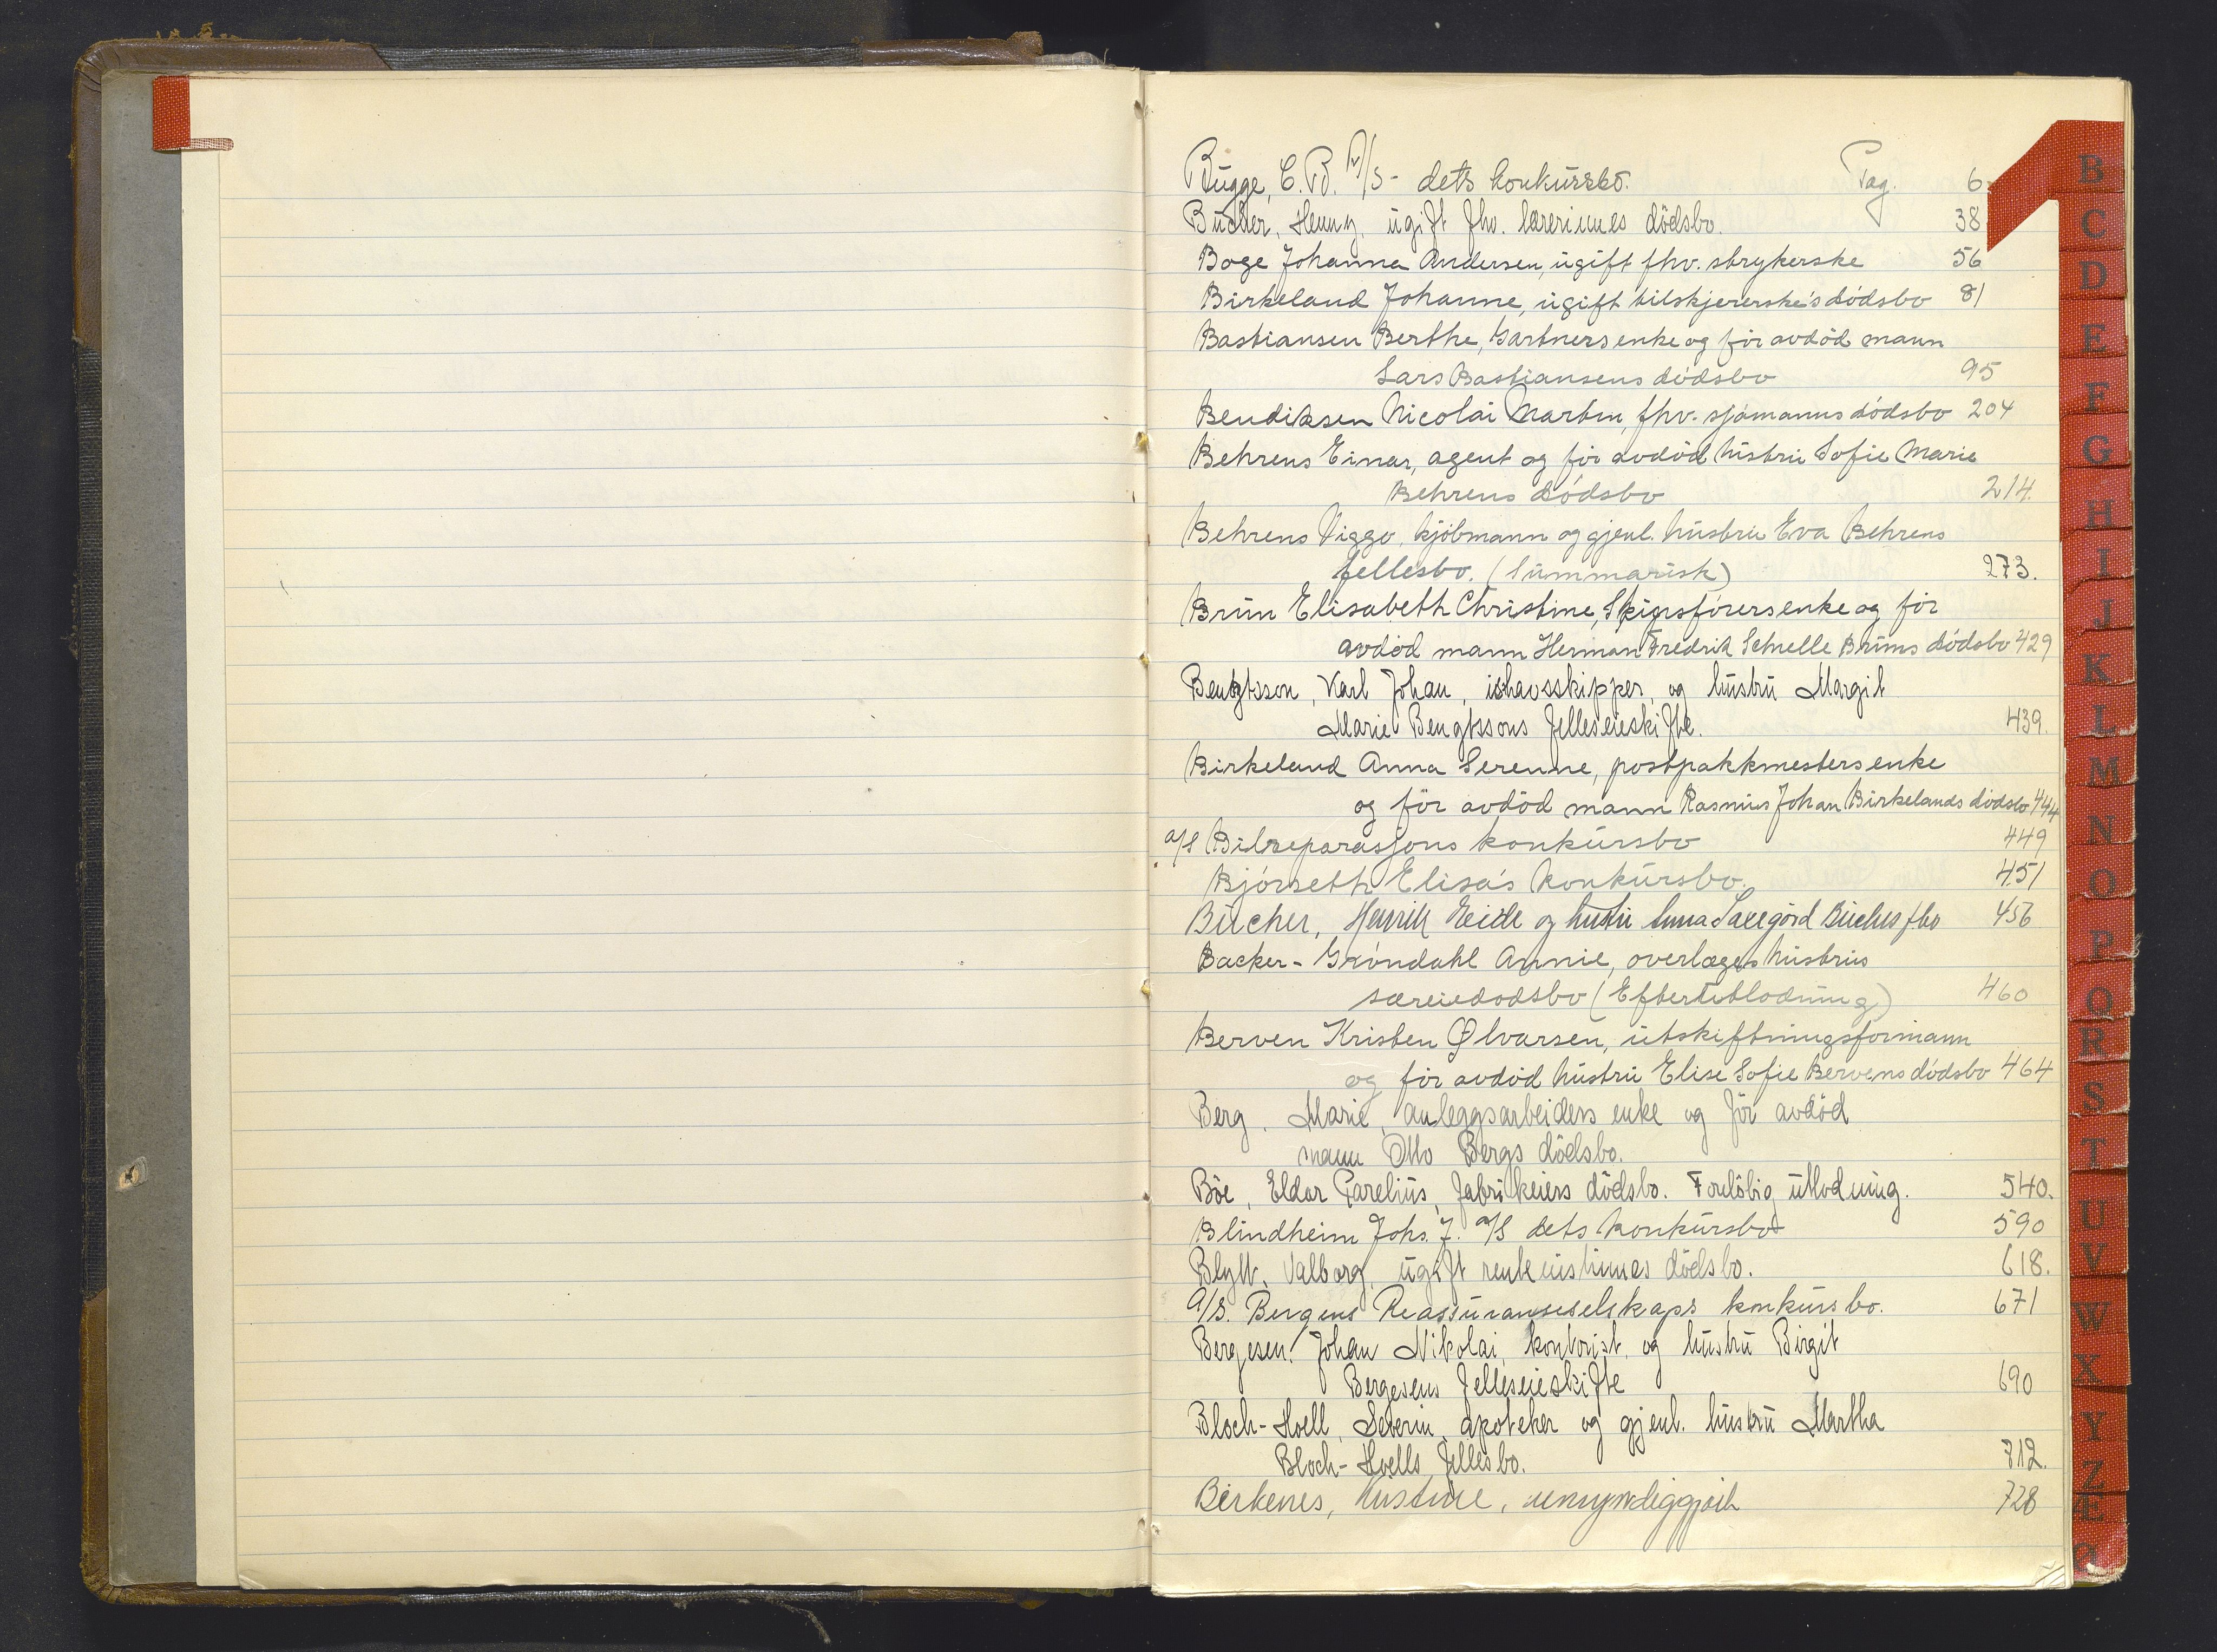 Bugge, C. Bd. A/S - dets konkursbo. Pag. 6.
Bücher, Henny, ugift fhv. lærerinnes dödsbo. 38
Boge Johanna Andersen, ugift fhv. strykerske 56
Birkeland Johanne, ugift tilskjererske's dödsbo 81
Bastiansen Berthe, Gartnersenke og för avdöd mann
Lars Bastiansens dödsbo 95
Bendiksen Nicolai Martin, fhv. sjömanns dödsbo 204
Behrens Einar, agent og för avdöd hustru Sofie Marie
Behrens dödsbo 214.
Behrens Viggo, kjöbmann og gjenl. hustru Eva Behrens
fellesbo. (Summarisk) 273.
Brun Elisabeth Christine, Skipsförersenke og för
avdöd mann Herman Fredrik Schnelle Bruns dödsbo 429
Bengtsson, Karl Johan, ishavsskipper, og hustru Margit
Marie Bengtssons felleseieskifte. 439.
Birkeland Anna Serenne, postpakkmestersenke
og för avdöd mann Rasmus Johan Birkelands dödsbo 444
a/s Bilreparasjons konkursbo 449
Björseth Elisa's konkursbo. 451
Bücher, Henrik Eide og hustru Anna Büchers fbo 456
Backer-Gröndahl Annie, overlæges hustrus
særeiedödsbo (Efterutlodning) 460
Berven Kristen Ølvarsen, utskiftningsformann
og för avdöd hustru Elise Sofie Bervens dödsbo 464
Berg, Marie, anleggsarbeiders enke og för avdöd
mann Otto Bergs dödsbo.
Böe, Eldar Parelius, fabrikeiers dödsbo. Forelöbig utlodning. 540.
Blindheim Johs. J. a/s dets konkursbo 590
Blytt, Valborg, ugift rentenistinnes dödsbo. 618.
A/S. Bergens Reassuranseselskaps konkursbo. 671
Bergesen, Johan Nikolai, kontorist, og hustru Birgit
Bergesens felleseieskifte 690
Bloch-Hoell, Severin, apoteker og gjenl. hustru Martha
Bloch-Hoells fellesbo. 712.
Birkenes, Kristine, umyndiggjort 728
B
C
D
E
F
G
H
I
J
K
L
M
N
O
P
Q
R
S
T
U
V
W
X
Y
Z
Æ